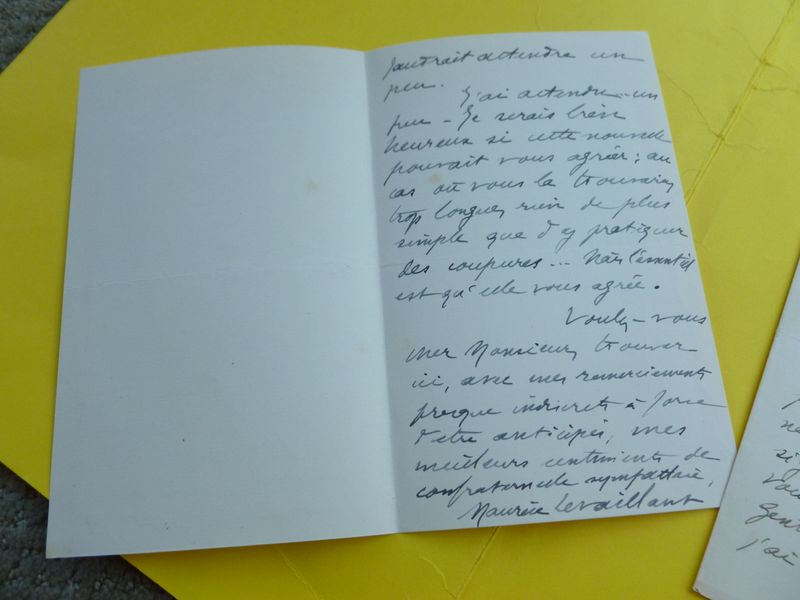 faudrait attendre un
peu.
J'ai attendu un
peu - Je serais bien
heureux si cette nouvelle
pouvait vous agréer ; au
cas où vous la trouveriez
trop longue, rien de plus
simple que d'y pratiquer
des coupures ... Mais l'essentiel
est qu'elle vous agrée.
Voulez-vous
cher Monsieur, trouver
ici, avec mes remerciements
presque indiscrets à force
d'être anticipés, mes
meilleurs sentiments de
confraternelle sympathie,
Maurice Levaillant
ne
si
vou
gen
j'ai